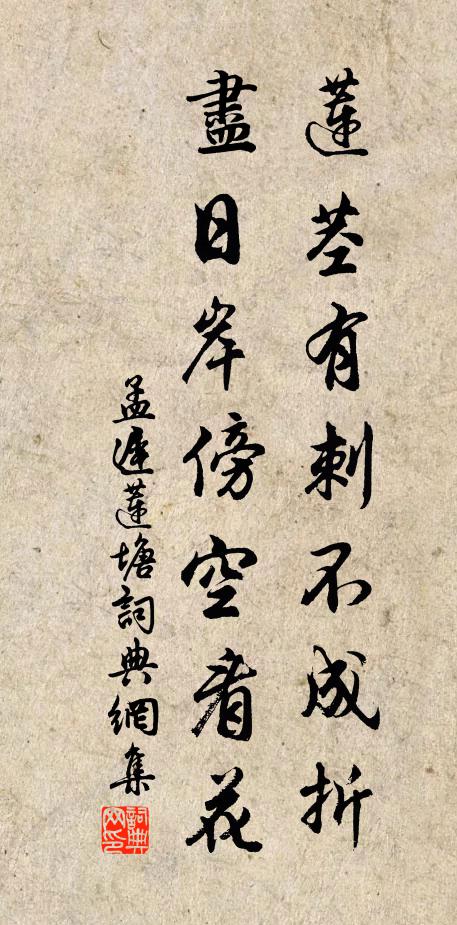 蓮莖有刺不成折
盡日岸傍空看花
孟遲蓮塘詞典網集
詞典网印